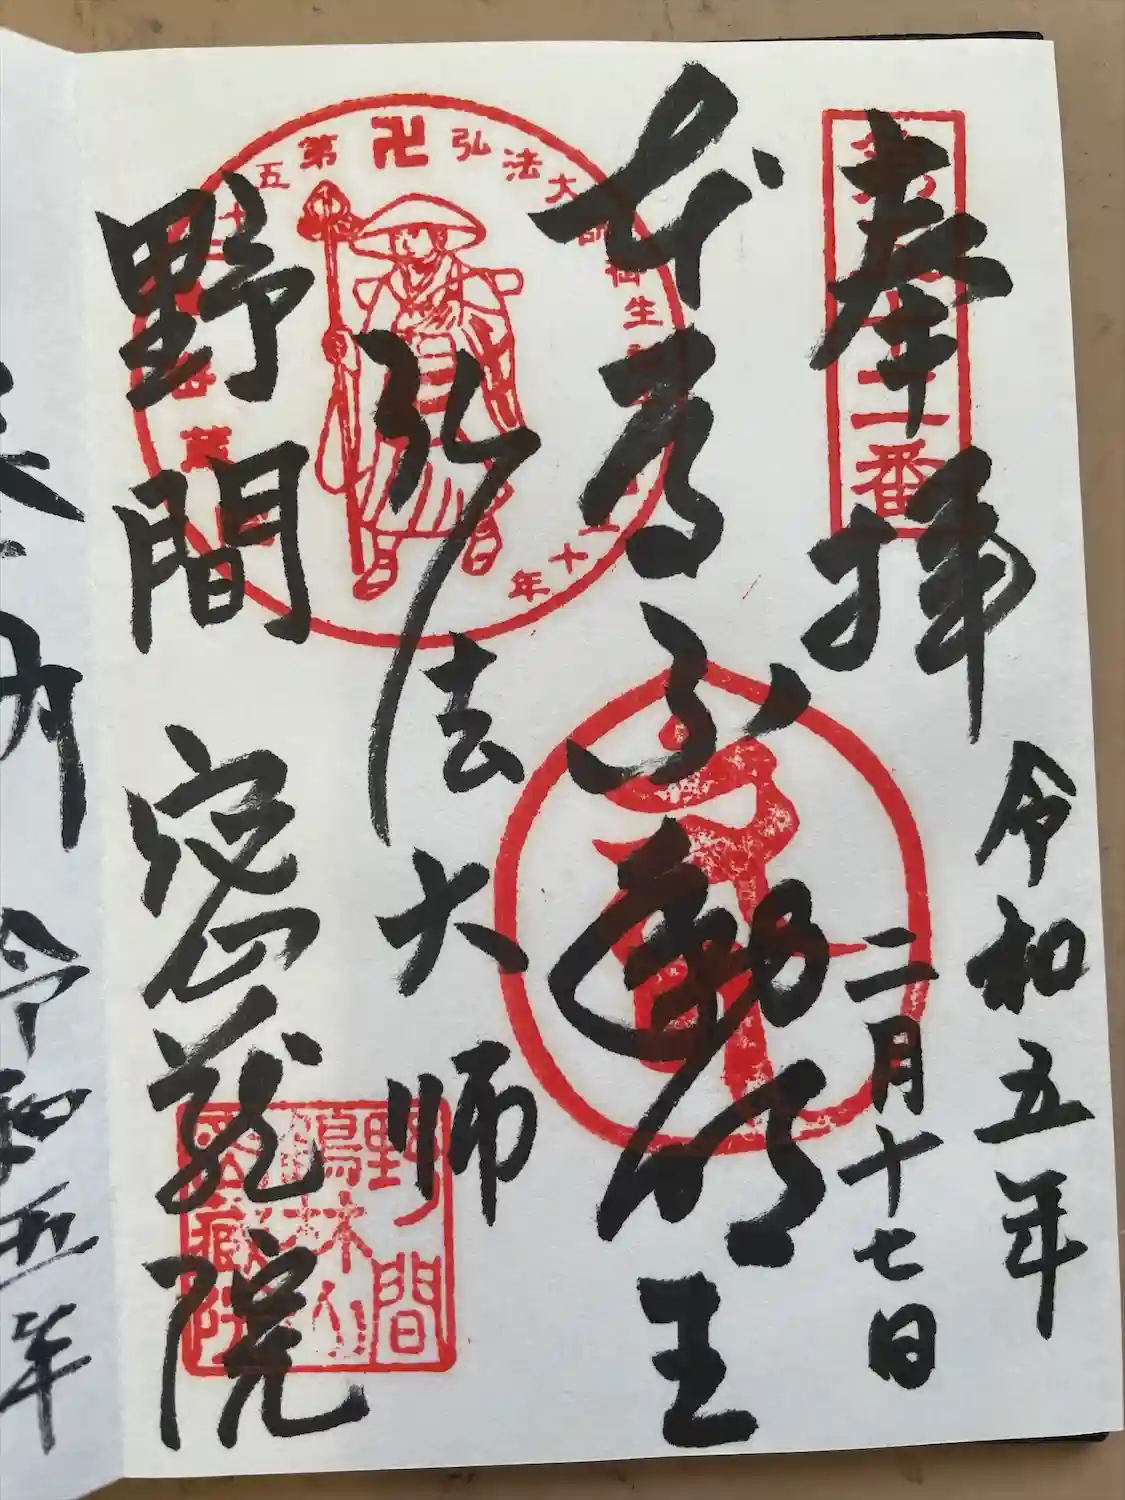 奉拝
令和五年
二月十七日
本尊不動明王
弘法大师
野間
密蔵院
第五十二番
卍
弘法大師御生
十年
野間
鶴林山
密蔵院
令和五年